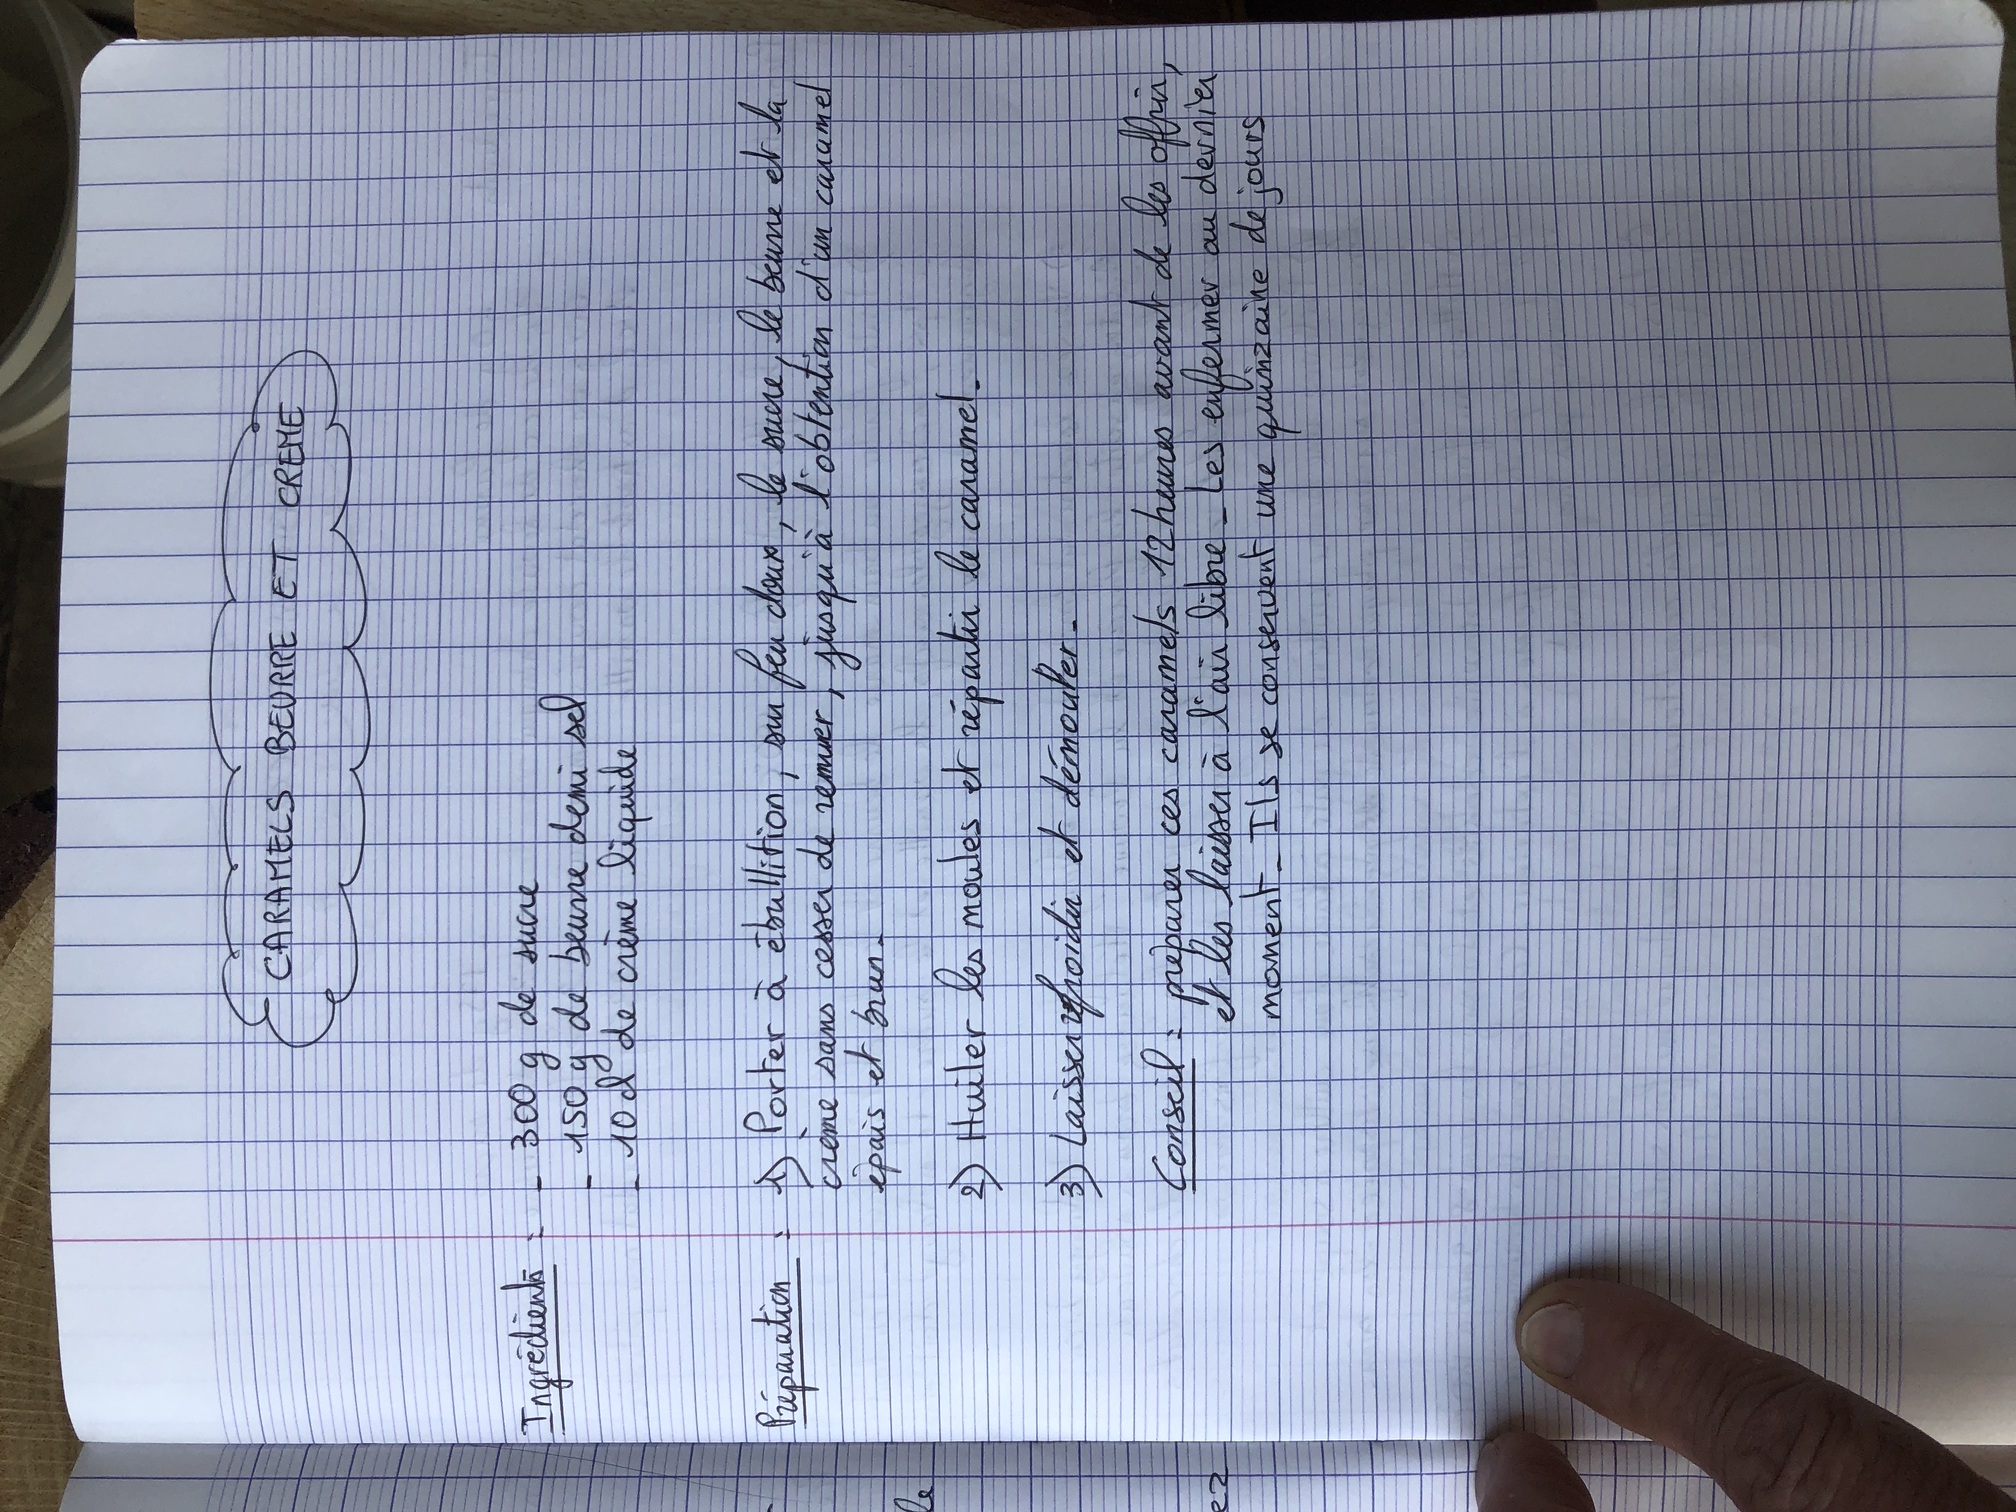 CARAMELS BEURRE ET CREME
Ingrédients : - 300 g de sucre
- 150 g de beurre demi sel
- 10 cl de crème liquide
Préparation : 1) Porter à ébullition, sur feu doux, le sucre, le beurre et la
crème sans cesser de remuer, jusqu'à l'obtention d'un caramel
épais et brun.
2) Huiler les moules et répartir le caramel.
3) Laisser refroidir et démouler.
Conseil : préparer ces caramels 12 heures avant de les offrir,
et les laisser à l'air libre. Les enfermer au dernier
moment. Ils se conservent une quinzaine de jours